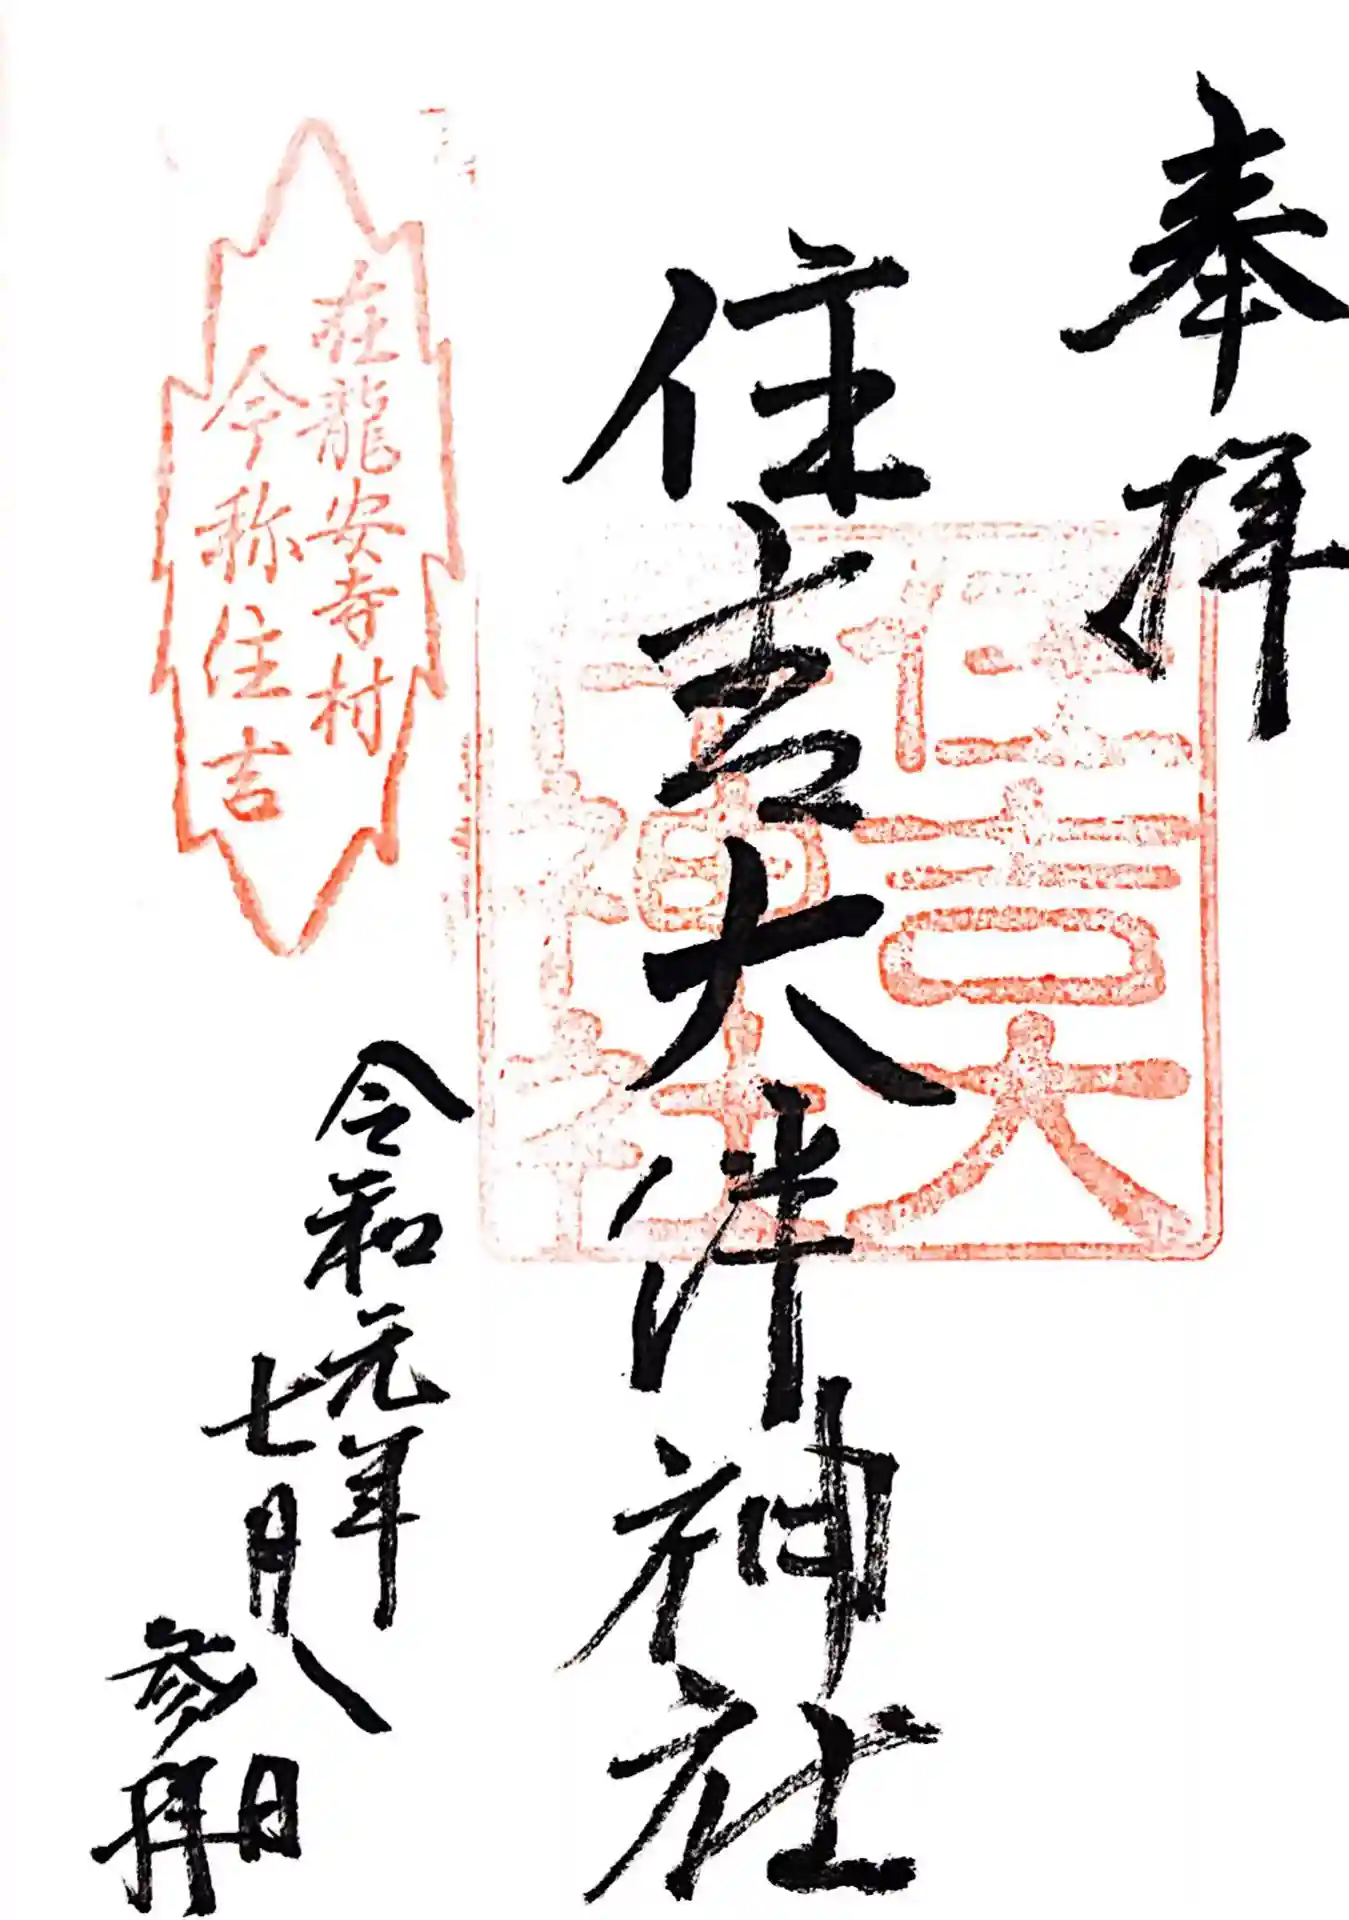 奉拝
住吉大伴神社
住吉大
伴神社
在龍安寺村
今称住吉
令和元年
七月八日
参